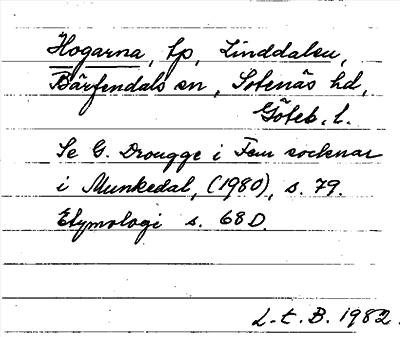 Hogarna, tp, Linddalen,
Bärfendals sn, Sotenäs hd,
Göteb. l.
Se G. Drougge i Fem socknar
i Munkedal, (1980), s. 79.
Etymologi s. 68 D.
L.t.B. 1982.